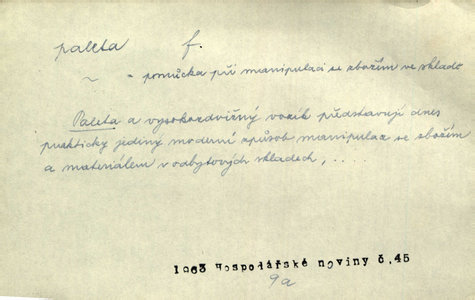 paleta f.
~ = pomůcka při manipulaci se zbožím ve skladě
Paleta a vysokozdvižný vozík představují dnes
prakticky jediný moderní způsob manipulace se zbožím
a materiálem v odbytových skladech, ....
1963 Hospodářské noviny č.45
9a